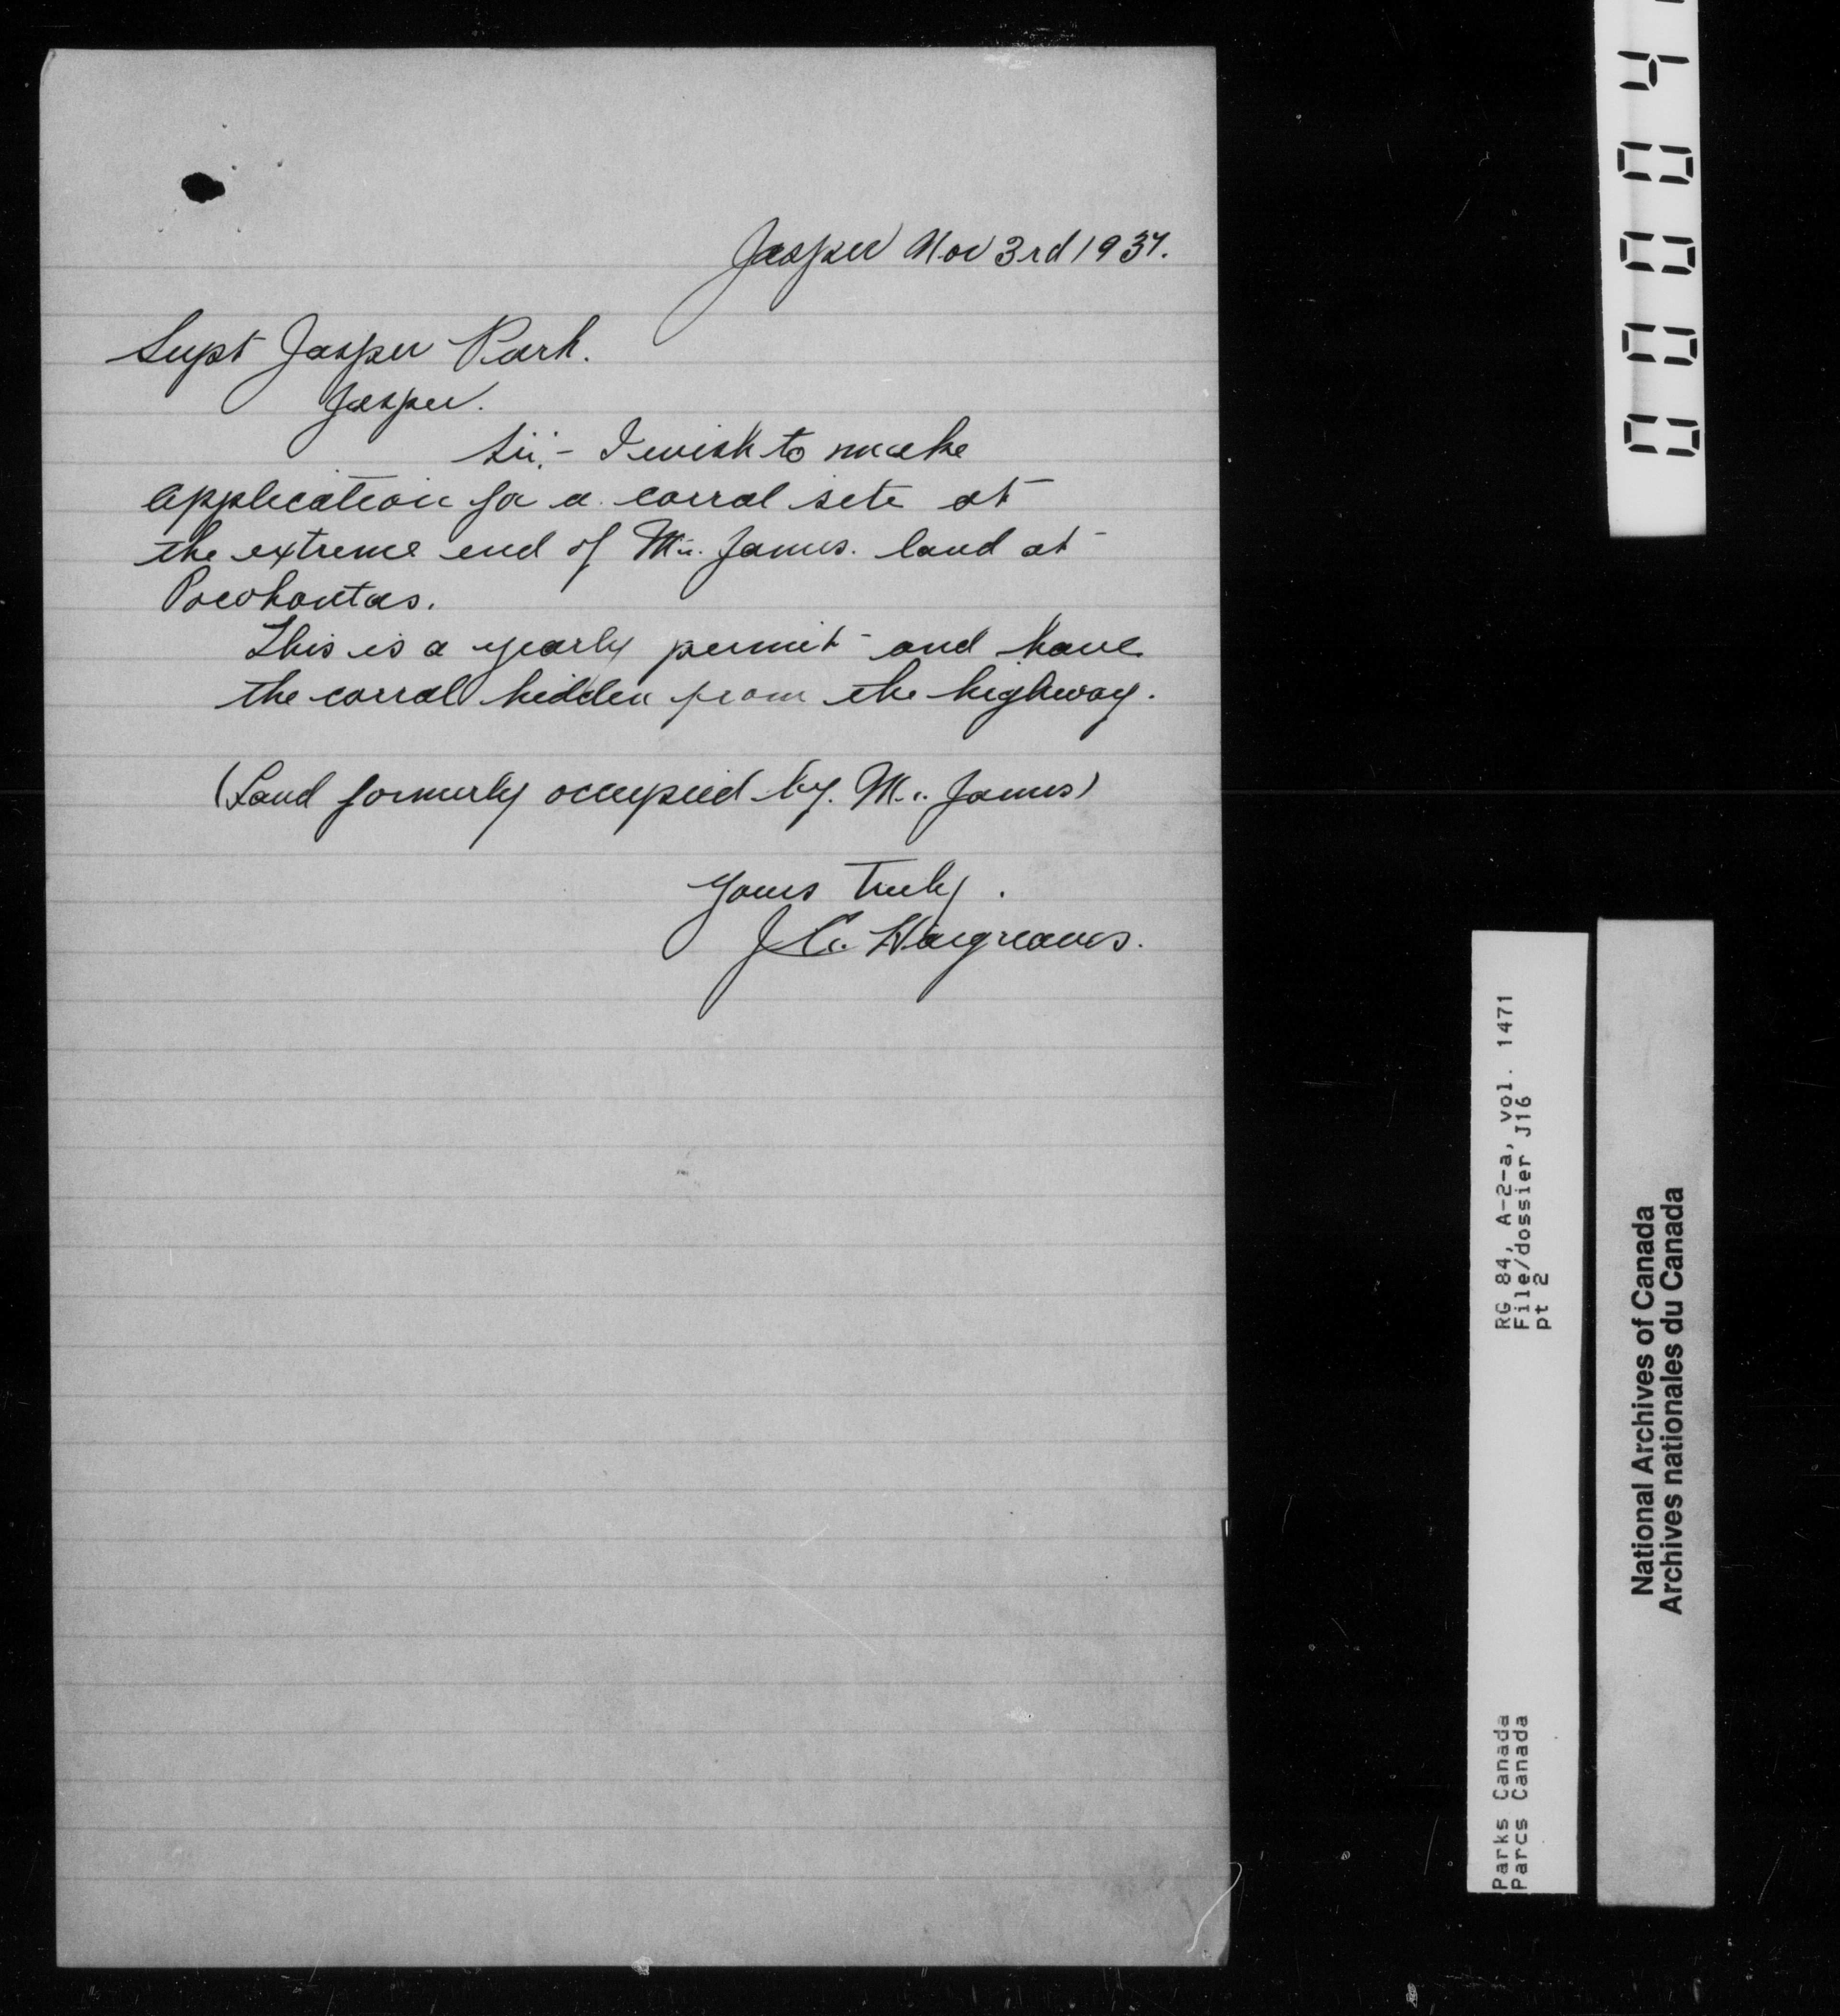 Jasper Nov 3rd 1937.
Supt Jasper Park.
Jasper.
Sir,- I wish to make
application for a corral site at
the extreme end of Mr. James. land at
Pocohontas.
This is a yearly permit and have
the corral hidden from the highway.
(Land formerly occupied by. Mr. James)
Yours Truly.
J C. Hargreaves.
RG 84, A-2-a, vol. 1471
File/dossier J16
pt 2
Parks Canada
Parcs Canada
National Archives of Canada
Archives nationales du Canada